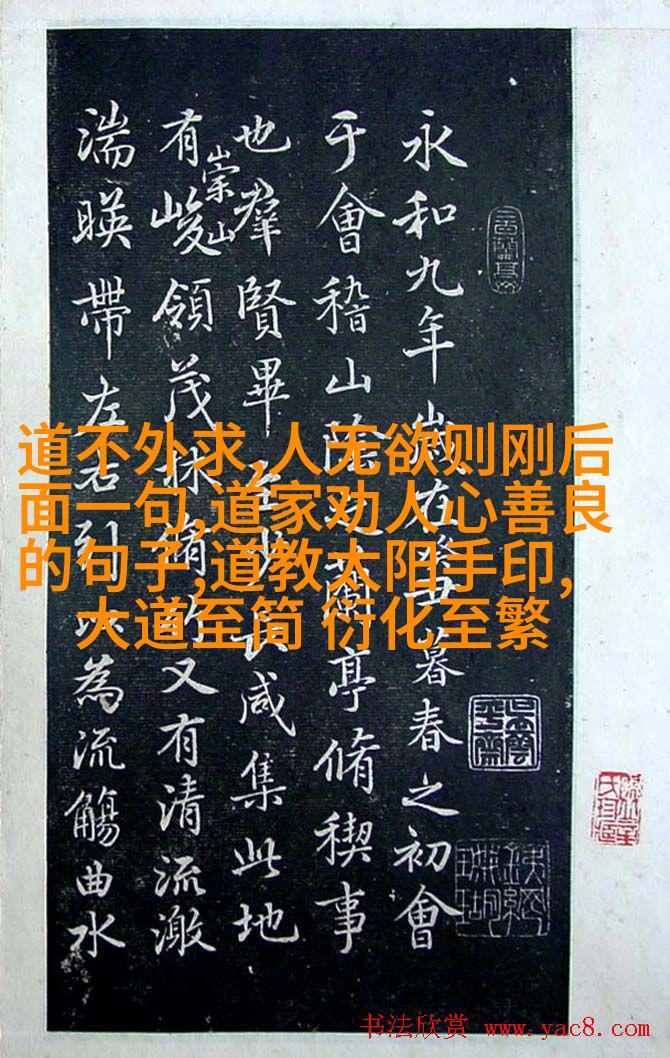 永和九年歲在癸丑暮春之初會
于會稽山陰之蘭亭脩稧事
也羣賢畢至少長咸集此地
有崇山峻領茂林脩竹又有清流激
湍暎帶左右引以為流觴曲水
道不外求,人无欲则刚后
面一句,道家劝人心善良
的句子,道教太阳手印,
大道至简 衍化至繁
书法欣赏 www.yac8.com